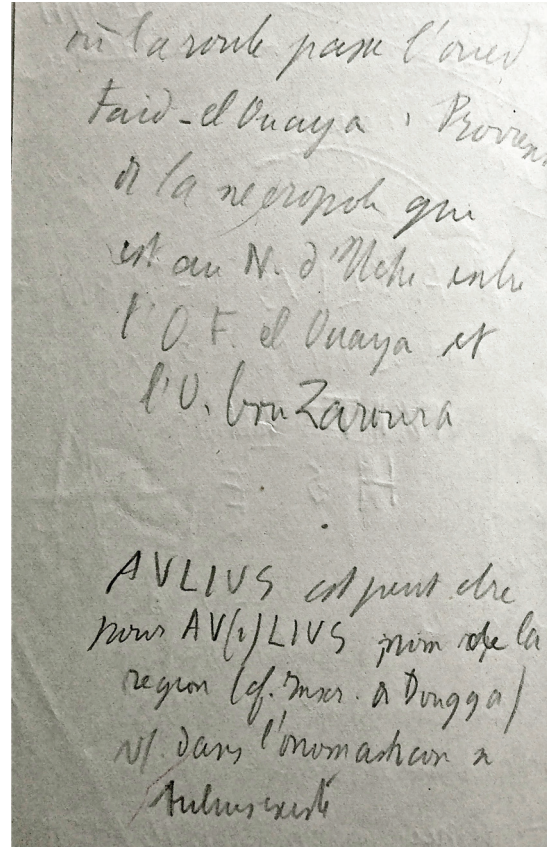 où la route passe l'oued
Faid-el Ouaya. Proven
de la necropole que
est au N. d'Uchi entre
l'O. F. el Ouaya et
l'O. bou Zaroura
AVLIUS est peut etre
pour AV(i)LIVS nom de la
region (cf. Inscr. de Dougga)
dans l'onomasticon
Aulius existe